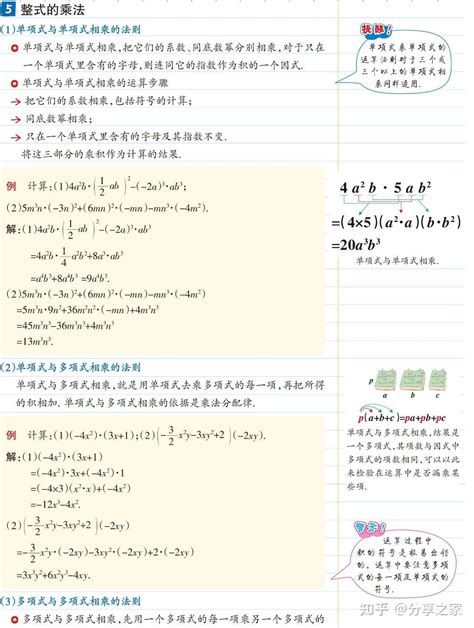 5 整式的乘法
(1)单项式与单项式相乘的法则
单项式与单项式相乘,把它们的系数、同底数幂分别相乘,对于只在
一个单项式里含有的字母,则连同它的指数作为积的一个因式.
单项式与单项式相乘的运算步骤
→ 把它们的系数相乘,包括符号的计算;
→ 同底数幂相乘;
→ 只在一个单项式里含有的字母及其指数不变.
将这三部分的乘积作为计算的结果.
提醒!
单项式乘单项式的
运算法则对于三个或
三个以上的单项式相
乘同样适用.
例 计算:(1)4a²b·(1/2 ab)²-(-2a)³·ab³;
(2)5m³n·(-3n)²+(6mn)²·(-mn)-mn³·(-4m²).
解:(1)4a²b·(1/2 ab)²-(-2a)³·ab³
=4a²b·1/4 a²b²+8a³·ab³
=a⁴b³+8a⁴b³ =9a⁴b³.
(2)5m³n·(-3n)²+(6mn)²·(-mn)-mn³·(-4m²)
=5m³n·9n²+36m²n²·(-mn)+4m³n³
=45m³n³-36m³n³+4m³n³
=13m³n³.
4 a² b · 5 a b²
=(4×5)(a²·a)(b·b²)
=20a³b³
单项式与单项式相乘.
(2)单项式与多项式相乘的法则
单项式与多项式相乘,就是用单项式去乘多项式的每一项,再把所得
的积相加. 单项式与多项式相乘的依据是乘法分配律.
p
a b c
p(a+b+c)=pa+pb+pc
单项式与多项式相乘,结果是
一个多项式,其项数与因式中
多项式的项数相同,可以以此
来检验在运算中是否漏乘某
些项.
例 计算:(1)(-4x²)·(3x+1);(2)(-3/2 x²y-3xy²+2)(-2xy).
解:(1)(-4x²)·(3x+1)
=(-4x²)·3x+(-4x²)·1
=(-4×3)(x²·x)+(-4x²)
=-12x³-4x².
(2)(-3/2 x²y-3xy²+2)(-2xy)
=-3/2 x²y·(-2xy)-3xy²·(-2xy)+2·(-2xy)
=3x³y²+6x²y³-4xy.
警示!
运算过程中
积的符号是极易出错
的,运算中要注意多项
式的每一项及单项式的
符号.
(3)多项式与多项式相乘的法则
多项式与多项式相乘,先用一个多项式的每一项乘另一个多项式的
知乎 @分享之家